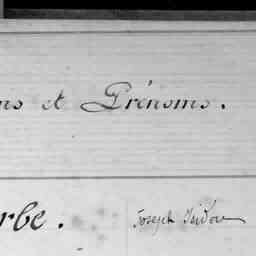 ns et Prénoms.
rbe. Joseph Isidore